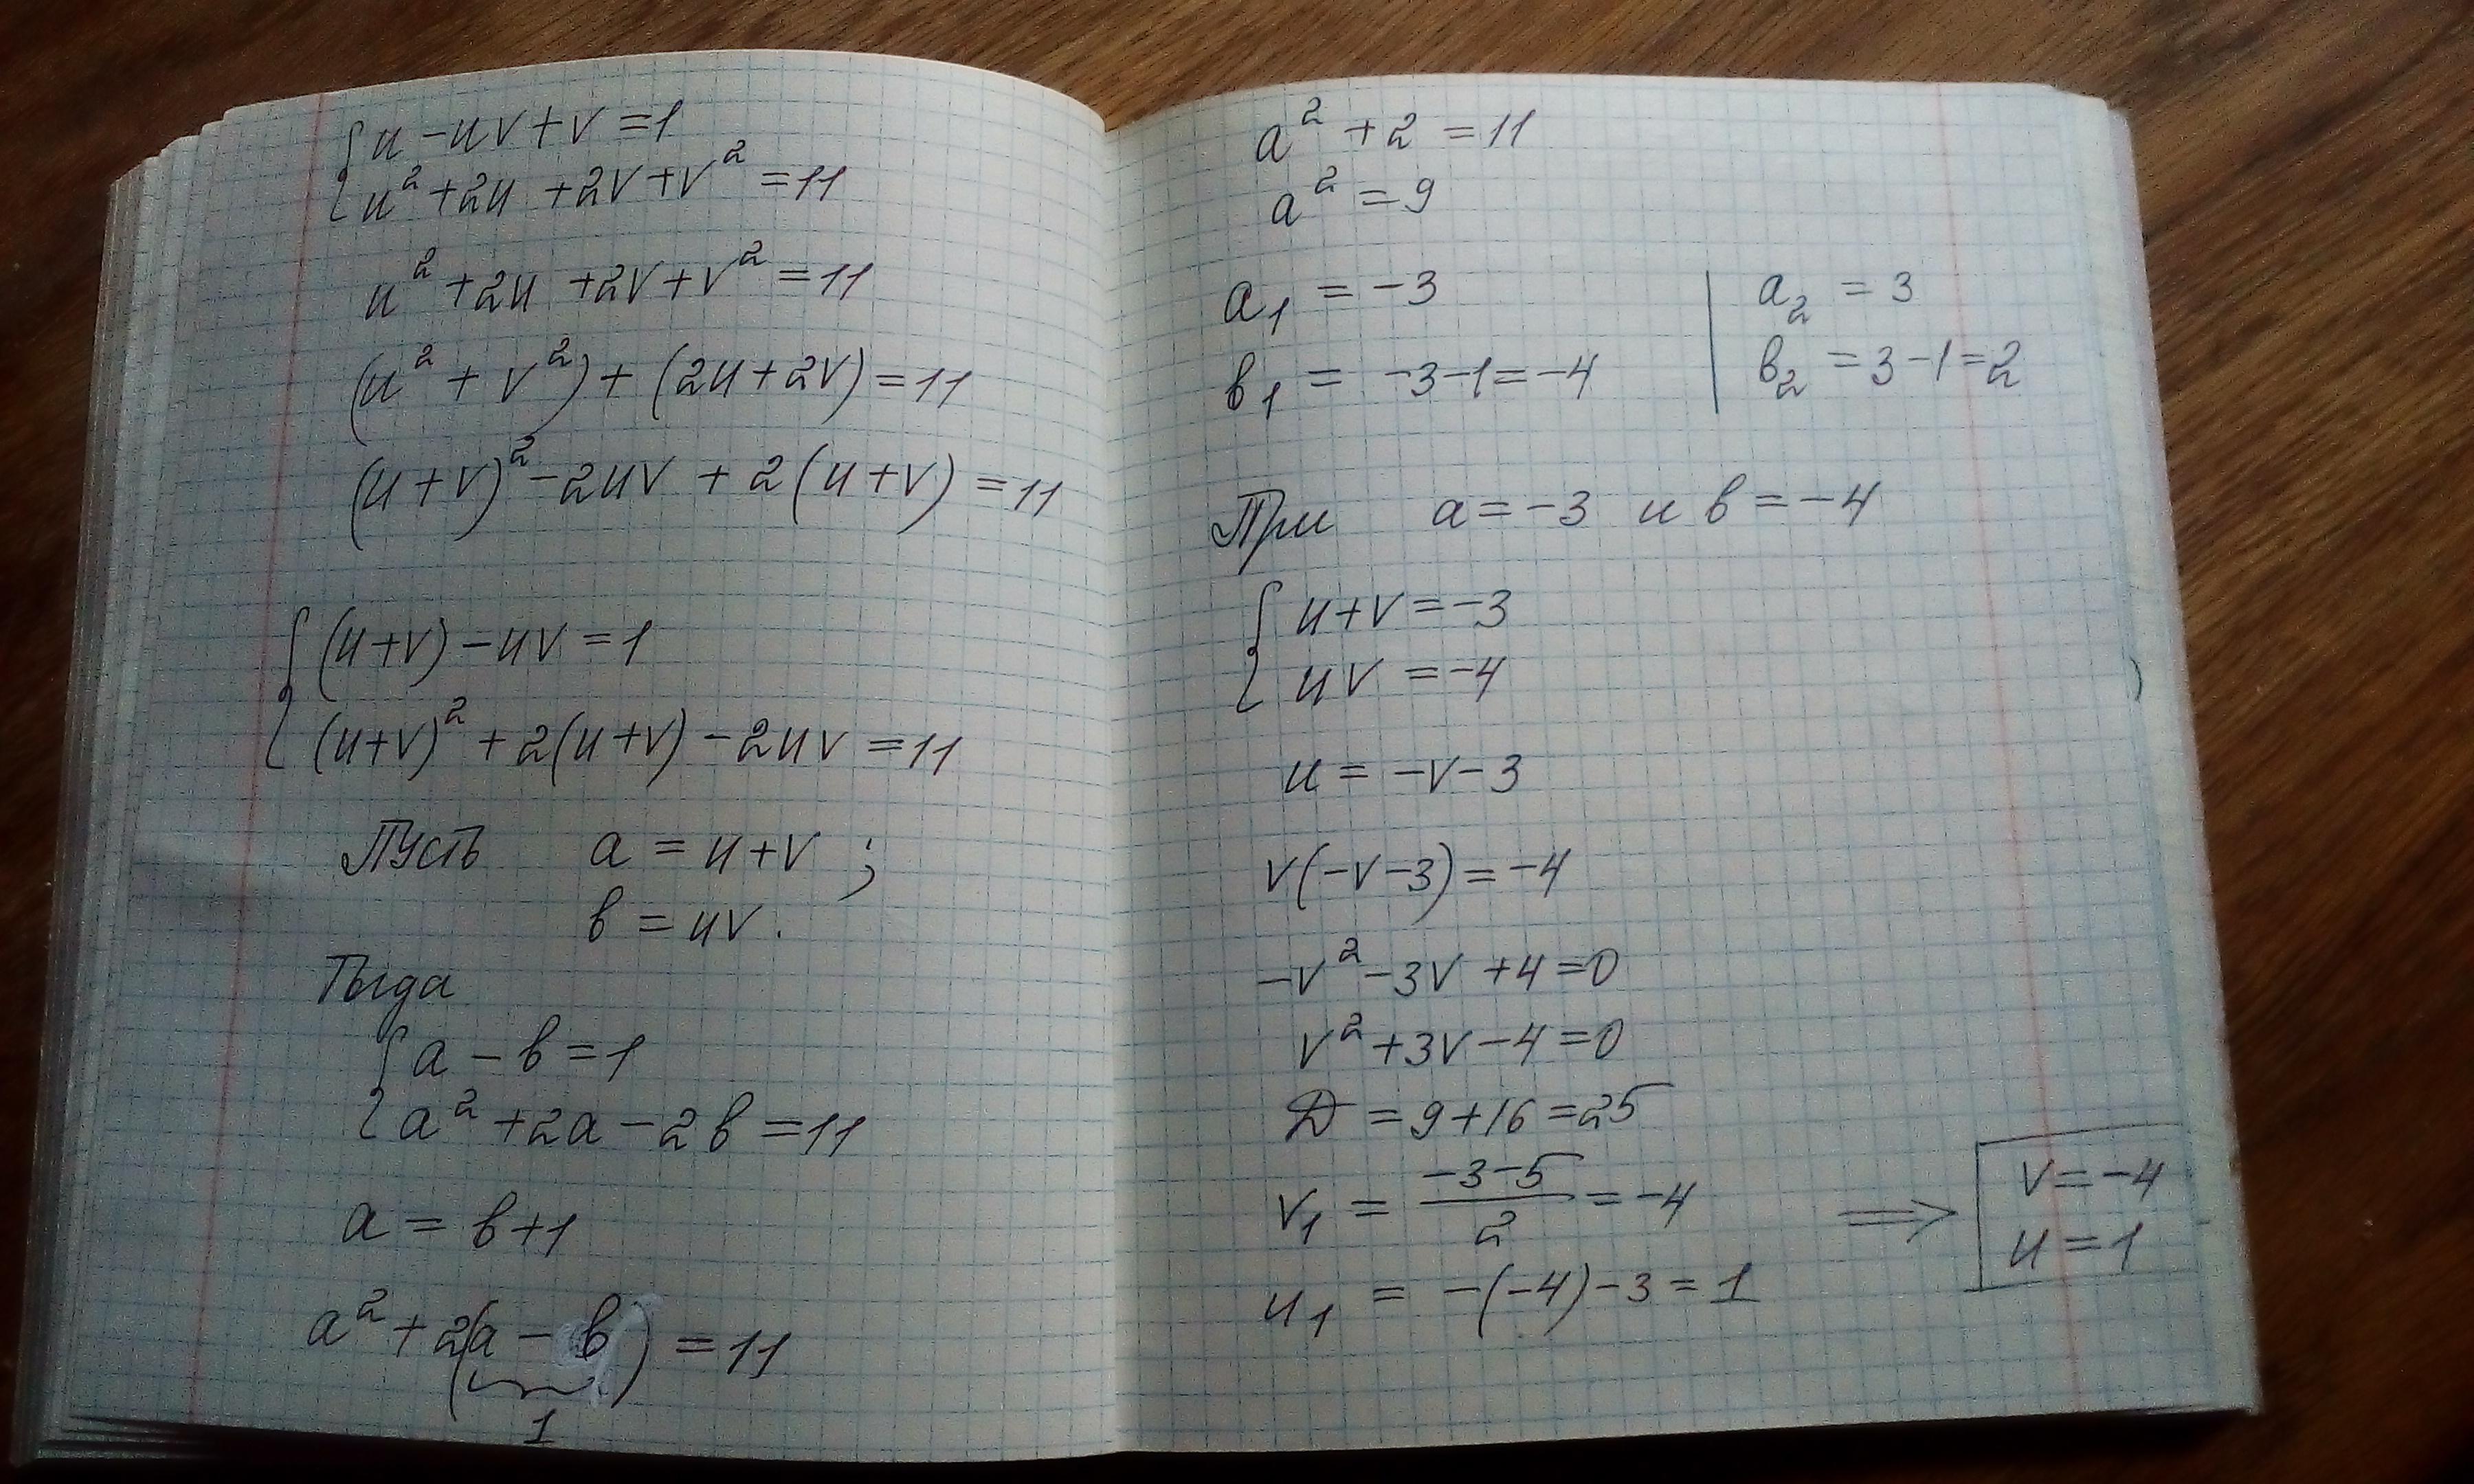 { u - uv + v = 1
{ u² + 2u + 2v + v² = 11
u² + 2u + 2v + v² = 11
(u² + v²) + (2u + 2v) = 11
(u + v)² - 2uv + 2(u + v) = 11
{ (u+v) - uv = 1
{ (u+v)² + 2(u+v) - 2uv = 11
Пусть a = u+v ;
в = uv.
Тогда
{ a - в = 1
{ a² + 2a - 2в = 11
a = в+1
a² + 2(a - в) = 11
1
a² + 2 = 11
a² = 9
a₁ = -3 | a₂ = 3
в₁ = -3-1 = -4 | в₂ = 3-1 = 2
При a = -3 и в = -4
{ u+v = -3
{ uv = -4
u = -v-3
v(-v-3) = -4
-v² - 3v + 4 = 0
v² + 3v - 4 = 0
D = 9+16 = 25
v₁ = (-3-5)/2 = -4 ⟹ v = -4
u = 1
u₁ = -(-4)-3 = 1